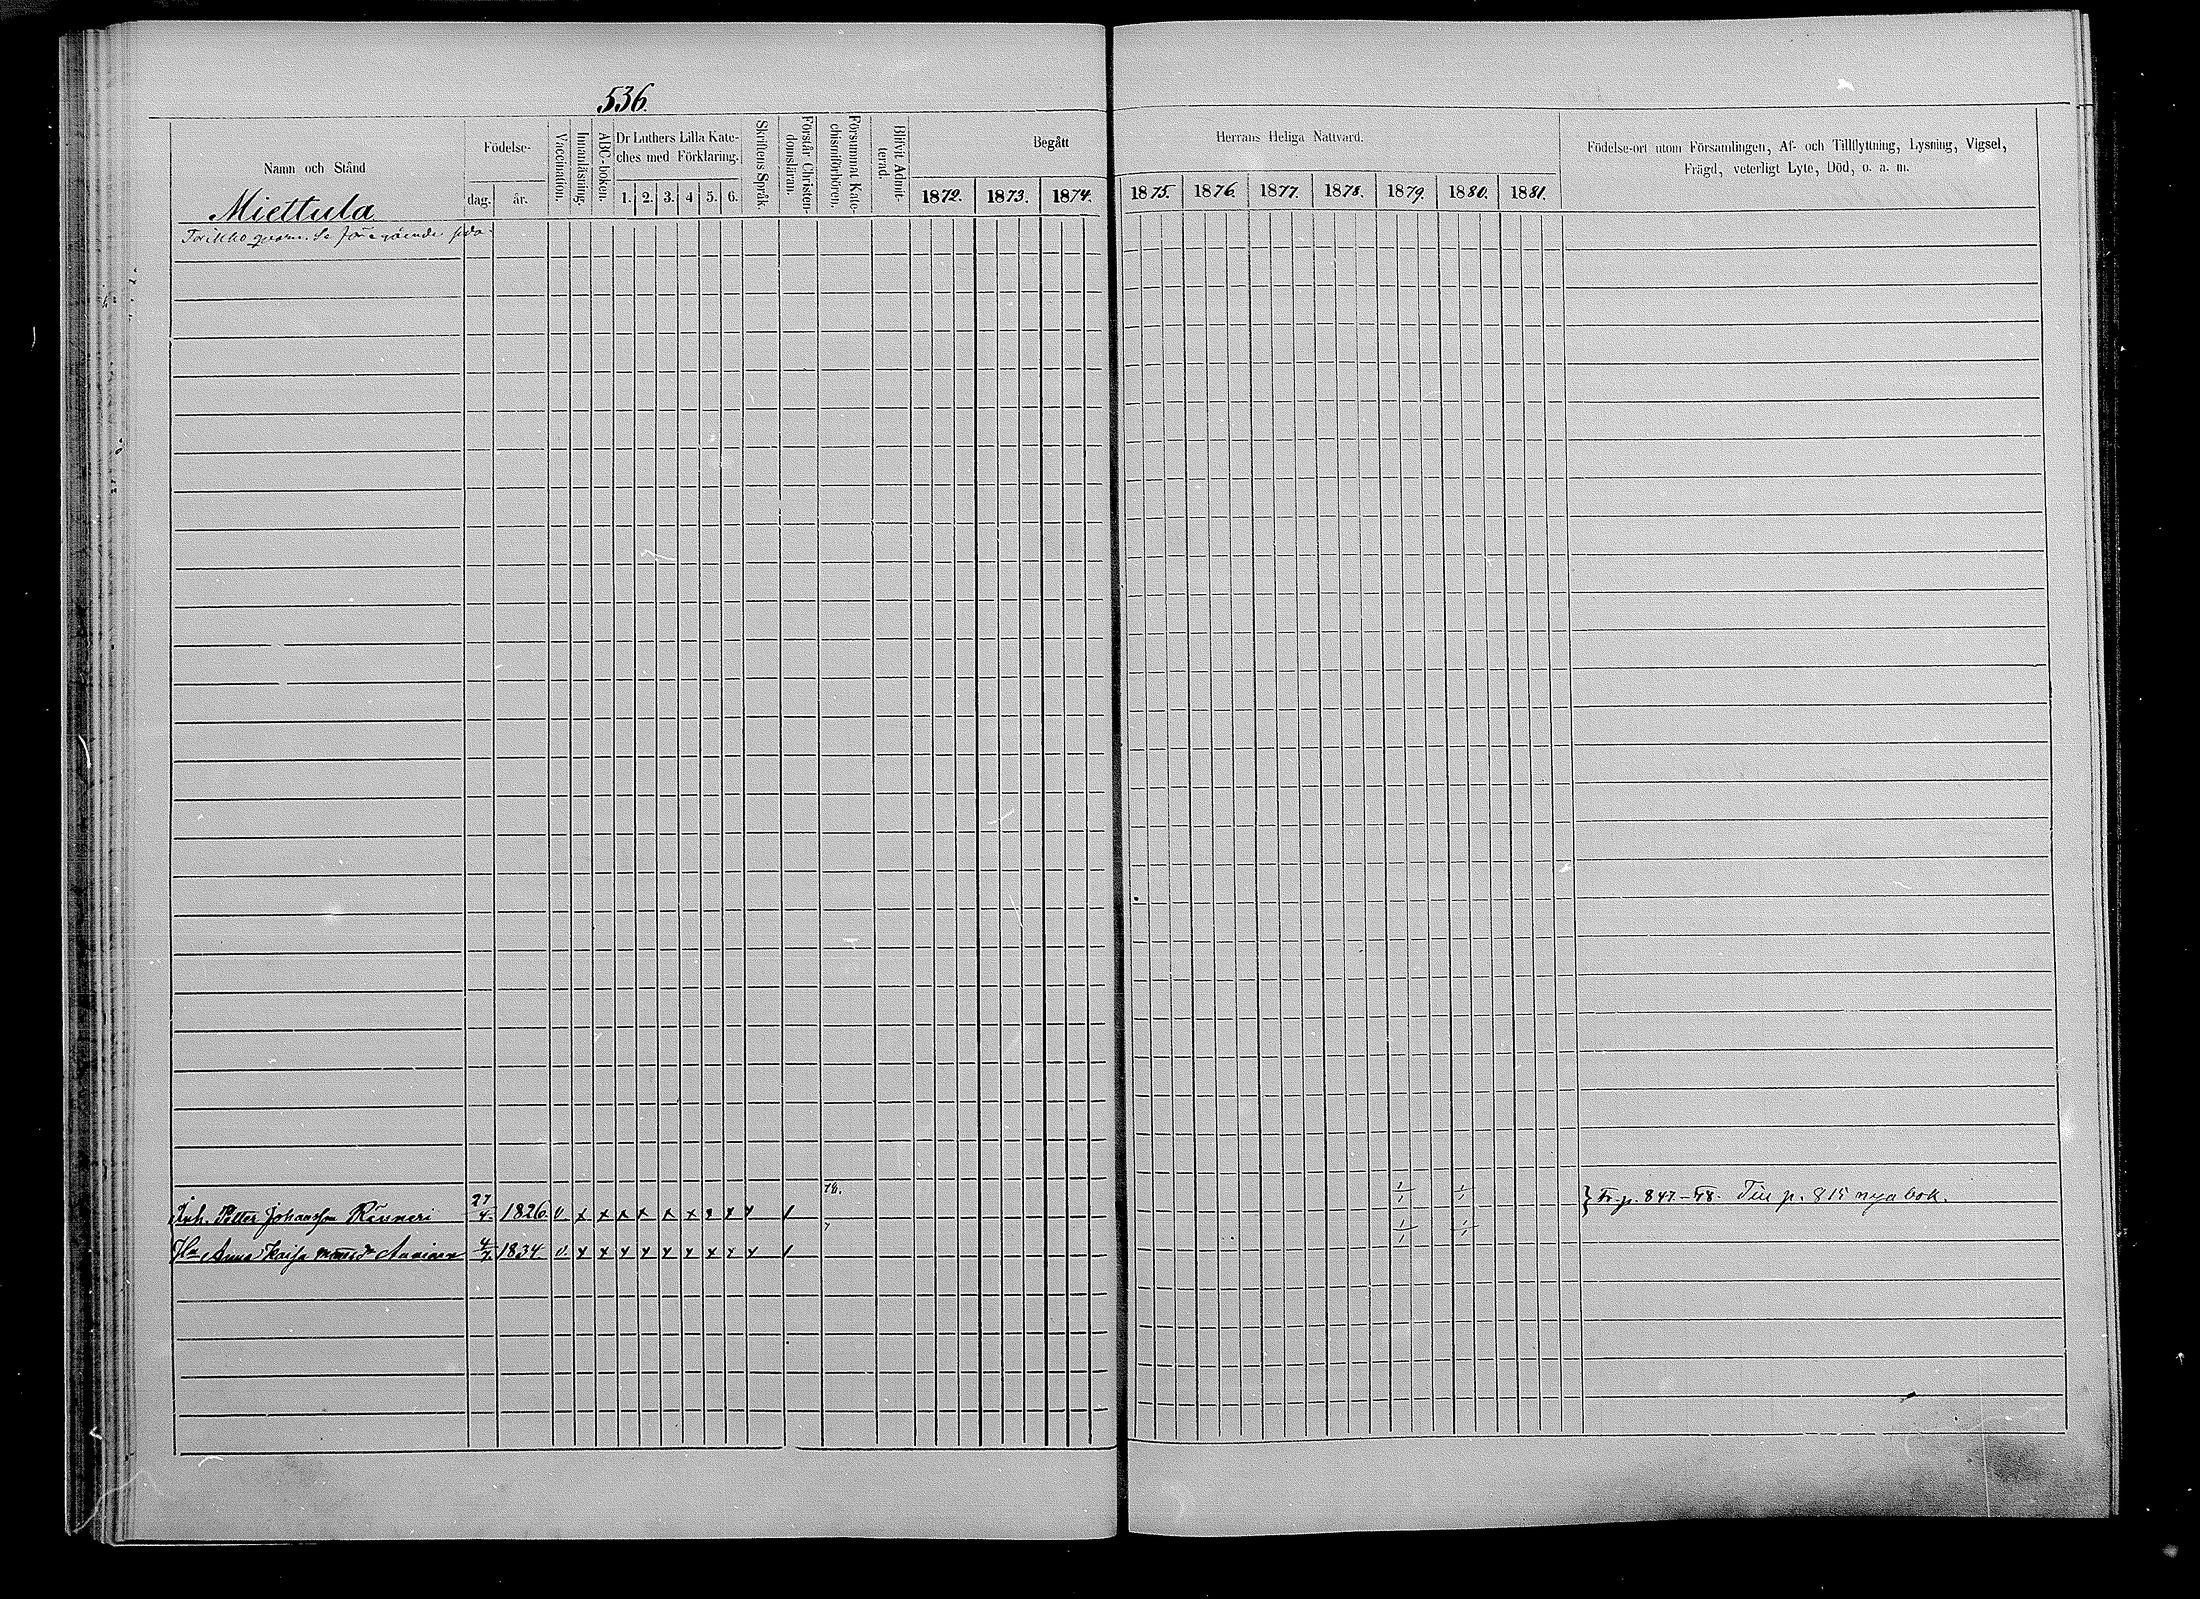 536.
Namn och Stånd
Miettula
Födelse-
dag. år.
Vaccination.
Innanläsning.
ABC-boken.
Dr Luthers Lilla Kate-
ches med Förklaring.
1. 2. 3. 4 5. 6.
Skriftens Språk.
Förstår Christen-
domsläran.
Försummat Kate-
chismiförhören.
Blifvit Admit-
terad.
Begått
1872. 1873. 1874.
Herrans Heliga Nattvard.
1875. 1876. 1877. 1878. 1879. 1880. 1881.
Födelse-ort utom Församlingen, Af- och Tillflyttning, Lysning, Vigsel,
Frägd, veterligt Lyte, Död, o. a. m.
Se föregående sida
Inh. Petter Johansson 27/4 1826 v. x x x x x x x x x / 78. 1/1 1/1 } Fr. p. 847-78. Till p. 815 nya bok.
Hu Anna Kaisa 4/7 1834. v. x x x x x x x x x / 1/1 1/1